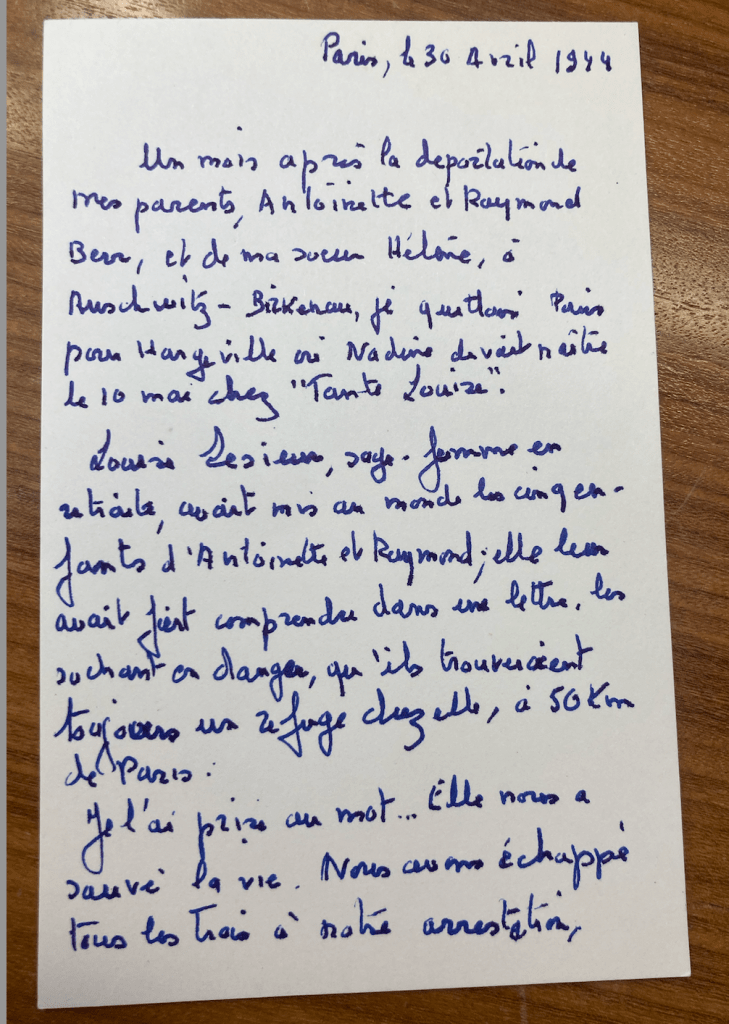 Paris, le 30 Avril 1944
Un mois après la déportation de
mes parents, Antoinette et Raymond
Berr, et de ma soeur Hélène, à
Auschwitz - Birkenau, je quittais Paris
pour Hargeville où Nadine devait naître
le 10 mai chez "Tante Louise".
Louise Lesieur, sage-femme en
retraite, avait mis au monde les cinq en-
fants d'Antoinette et Raymond; elle leur
avait fait comprendre dans une lettre, les
sachant en danger, qu'ils trouveraient
toujours un refuge chez elle, à 50 Km
de Paris.
Je l'ai prise au mot... Elle nous a
sauvé la vie. Nous avons échappé
tous les trois à notre arrestation,